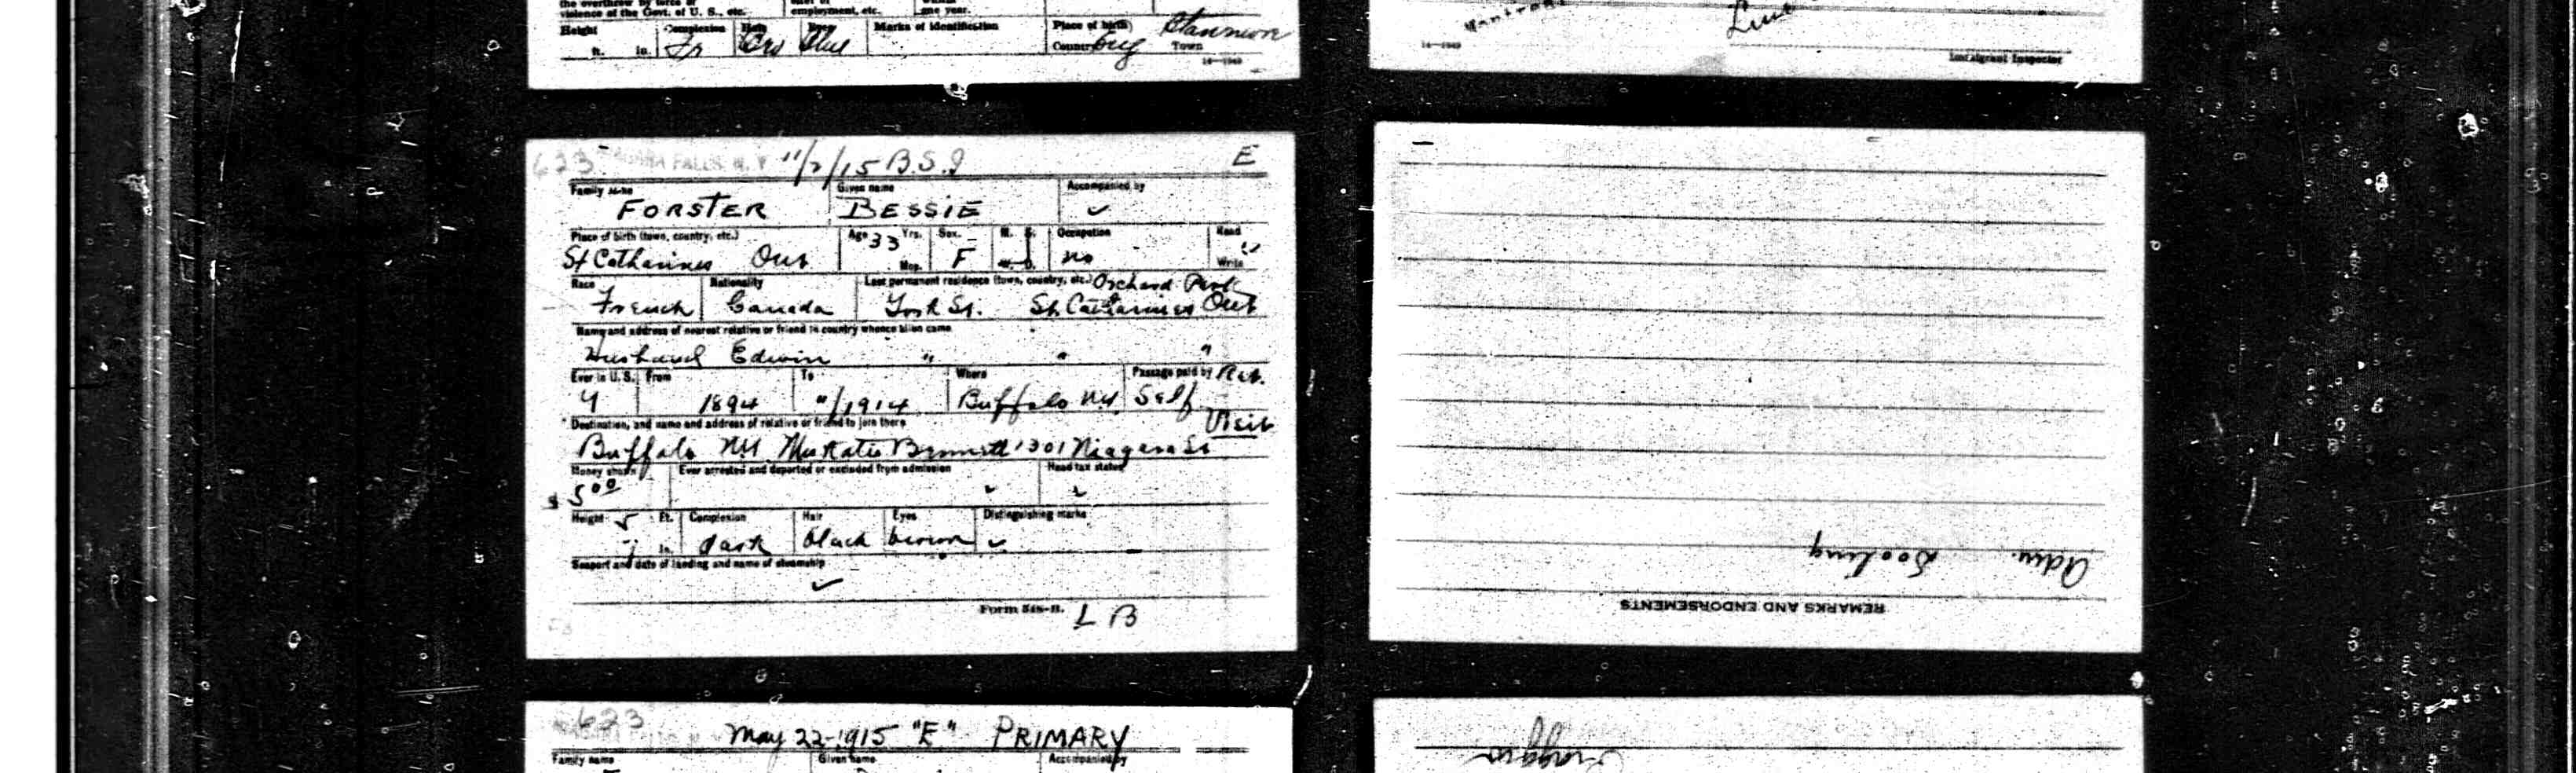 violence of the Govt. of U. S., etc. employment, etc. one year.
Height Complexion Hair Eyes Marks of identification Place of birth
ft. in. Fr Bro Blue Country Eng Town Stanmore
Immigrant Inspector
623 FALLS, N. Y. 11/2/15 B.S.I E
Family name Given name Accompanied by
FORSTER BESSIE ✓
Place of birth (town, country, etc.) Age 33 Yrs. Sex. M. S. Occupation Read
St Catharines Ont Mos. F W. D. no Write
Race Nationality Last permanent residence (town, country, etc.) Orchard Park
French Canada York St. St. Catharines Ont
Name and address of nearest relative or friend in country whence alien came
Husband Edwin " " "
Ever in U. S. From To Where Passage paid by Ret.
Y 1894 "/1914 Buffalo NY Self
Destination, and name and address of relative or friend to join there Visit
Buffalo NY Mrs Katie Bennett 1301 Niagara St
Money shown Ever arrested and deported or excluded from admission Head tax status
$ 5 00 ✓ ✓
Height 5 Ft. Complexion Hair Eyes Distinguishing marks
In. dark black brown ✓
Seaport and date of landing and name of steamship
✓
Form 548-B. L B
Adm. Dooling
REMARKS AND ENDORSEMENTS
623
May 22-1915 "E" PRIMARY
Family name Given name Accompanied by